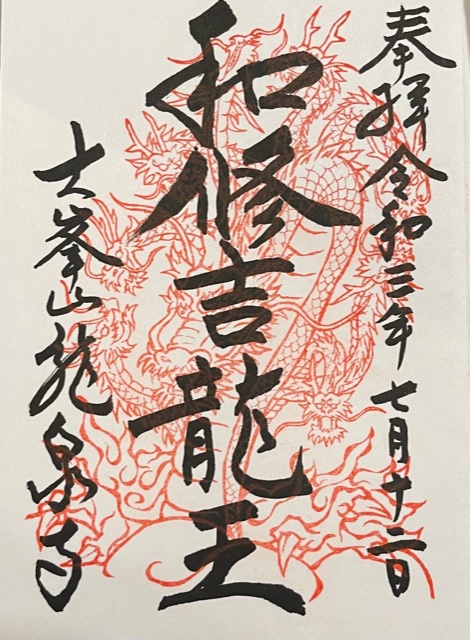 奉拝 令和三年 七月十二日
和修吉龍王
大峯山龍泉寺